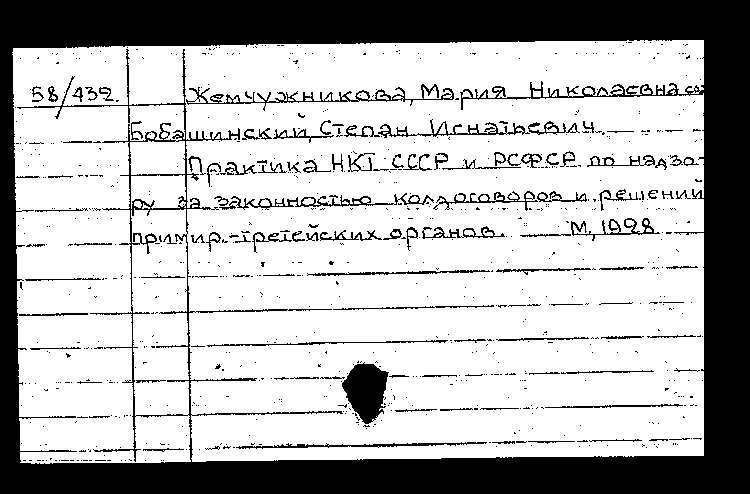 58/432. Жемчужникова, Мария Николаевна
Бобашинский, Степан Игнатьевич.
Практика НКТ СССР и РСФСР по надзо-
ру за законностью колдоговоров и решений
примир.-третейских органов. М, 1928